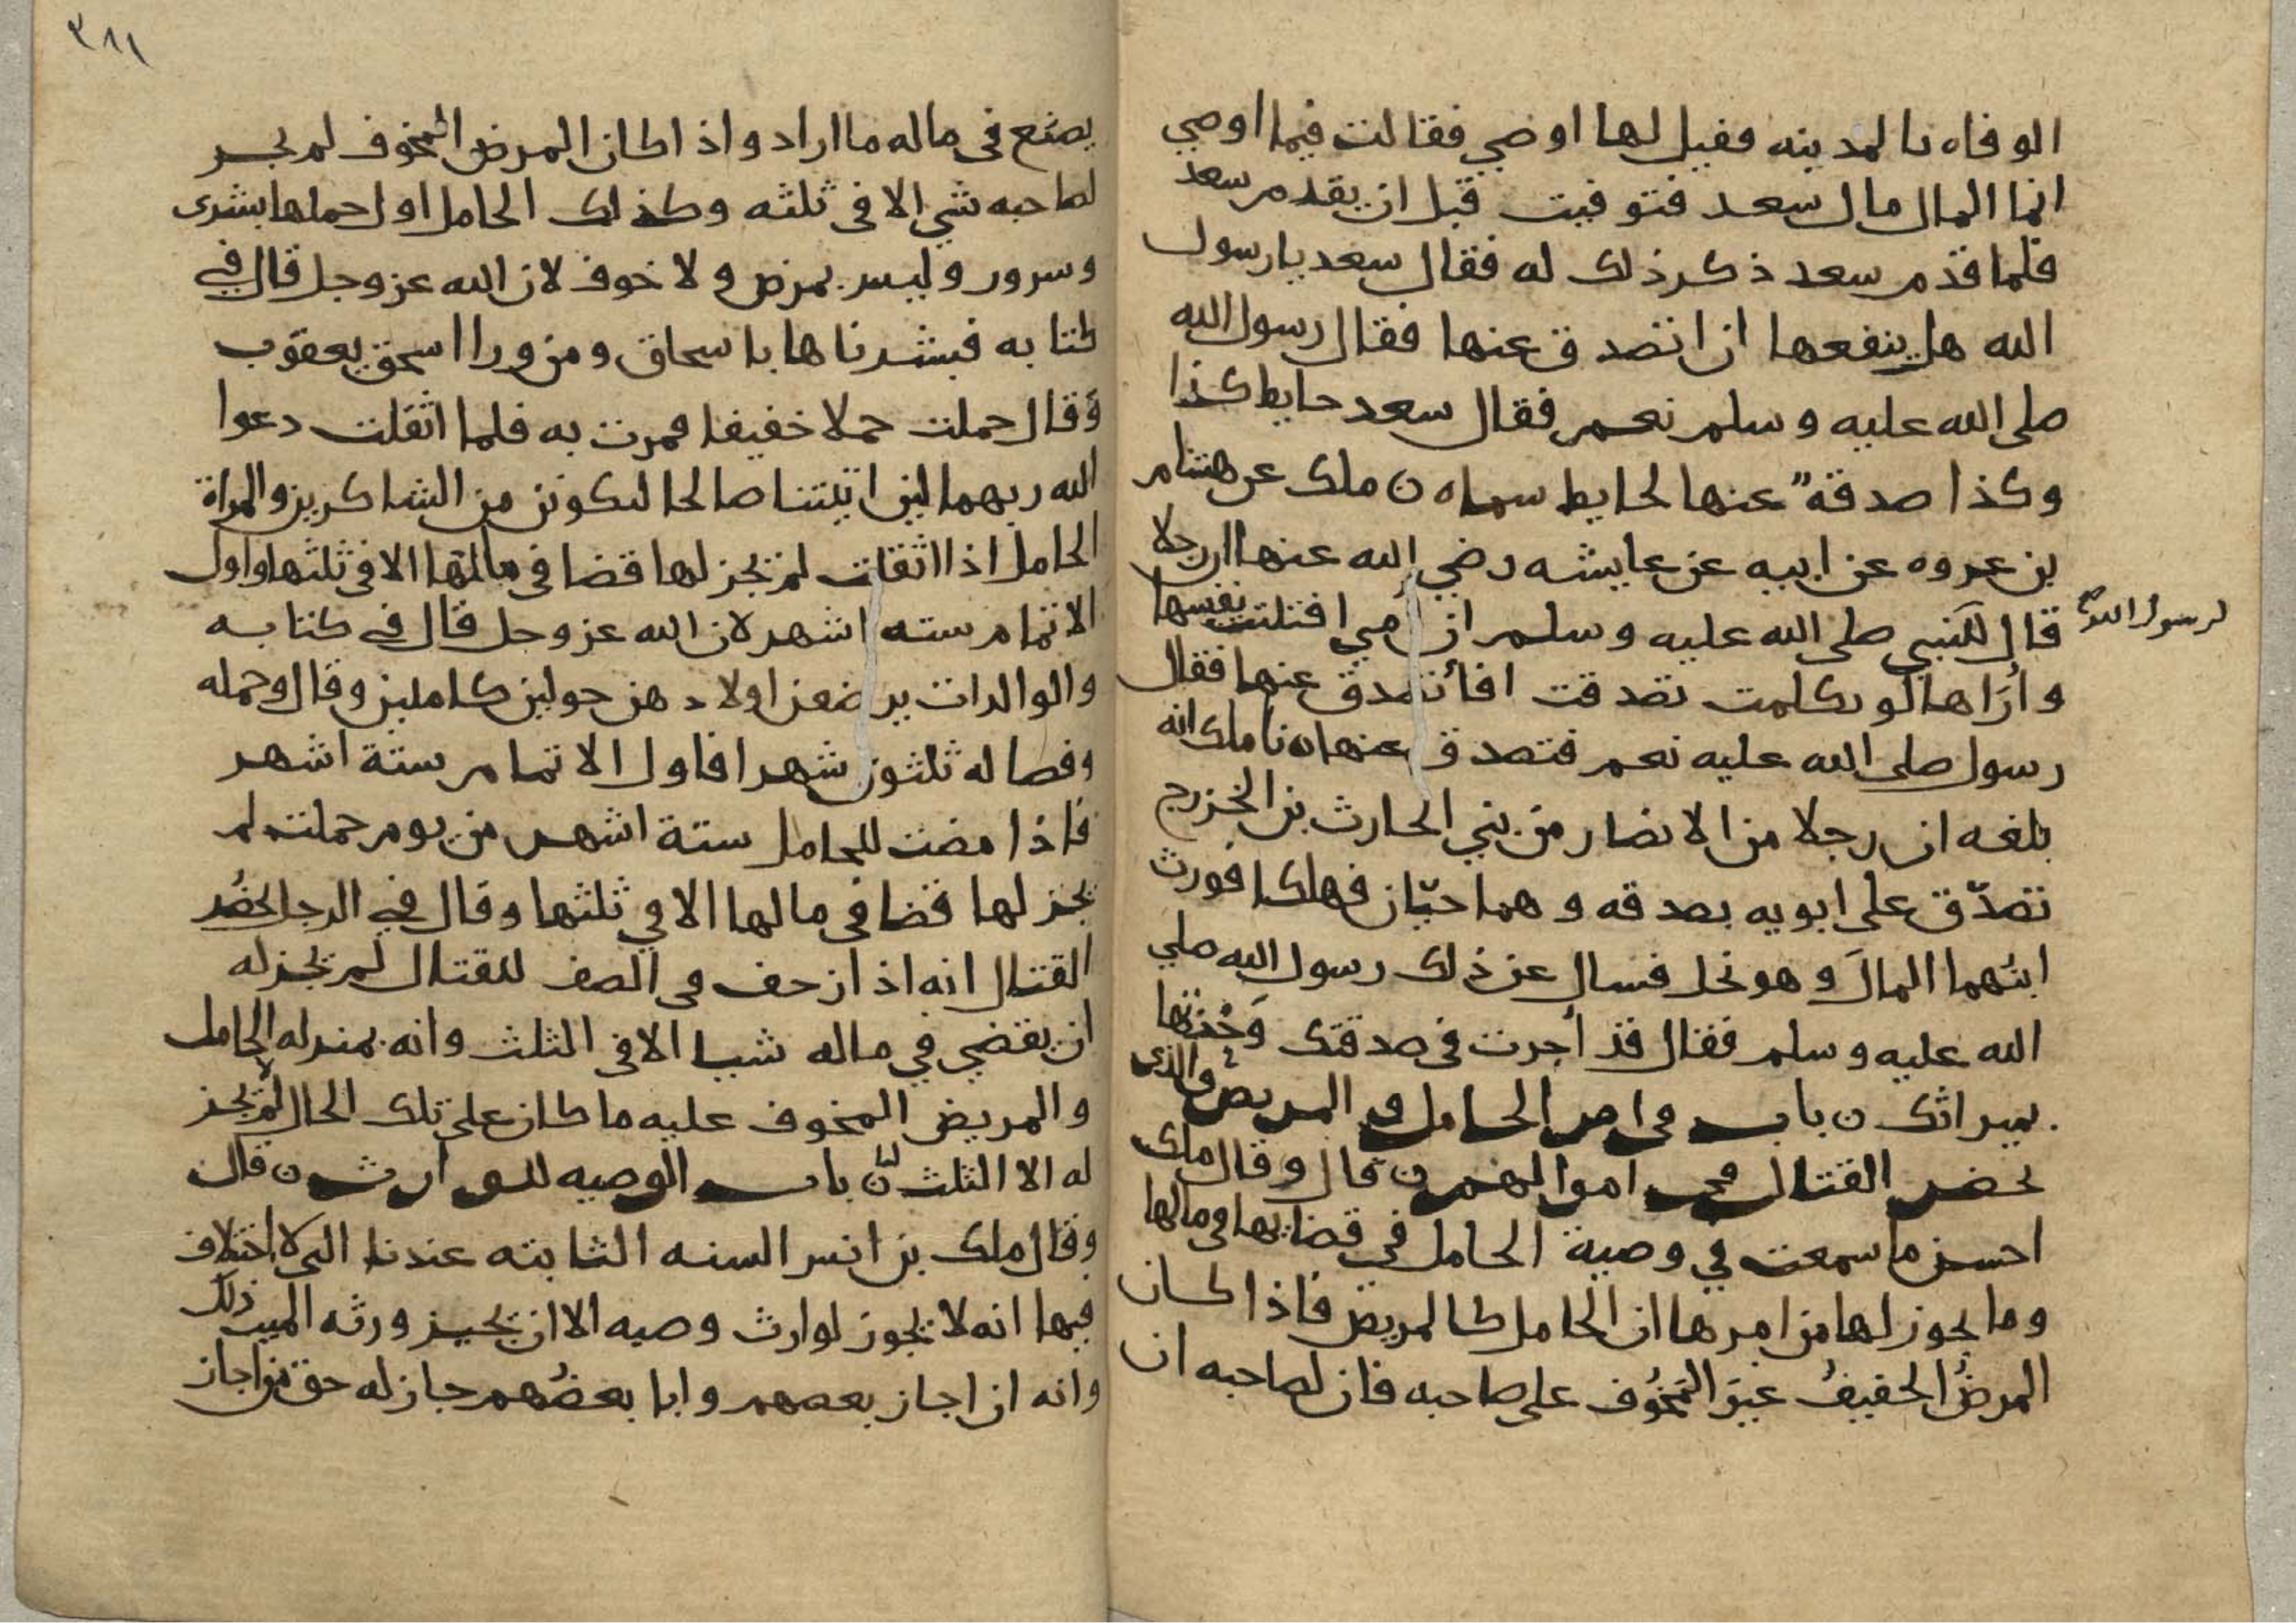 الوفاه بالمدينه فقيل لها اوصي فقالت فيما اوصي
انما المال مال سعد فتوفيت قبل ان يقدم سعد
فلما قدم سعد ذكر ذلك له فقال سعد يا رسول
الله هل ينفعها ان اتصدق عنها فقال رسول الله
صلى الله عليه وسلم نعم فقال سعد حايط كذا
وكذا صدقة عنها لحايط سماه ن ملك عن هشام
بن عروه عن ابيه عن عايشه رضي الله عنها ان رجلا
قال للنبي صلى الله عليه وسلم ان امي افتلتت نفسها
لرسول الله
وأراها لو تكلمت تصدقت افأتصدق عنها فقال
رسول صلى الله عليه نعم فتصدق عنها ه نا ملك انه
بلغه ان رجلا من الانصار من بني الحارث بن الخزرج
تصدّق على ابويه بصدقه وهما حيّان فهلكا فورث
ابنُهما المالَ وهو نخل فسال عن ذلك رسول الله صلي
الله عليه وسلم فقال قد أجرت في صدقتك وَخُذها
بميراثك ن باب في امر الحامل و المريض والذي
يحضر القتال في اموالهم ن قال وقال ملك
احسن ما سمعت في وصية الحامل في قضايها في مالها
وما يجوز لها من امرها ان الحامل كالمريض فاذا كان
المرضُ الخفيفُ غيرَ المَخوُف على صاحبه فان لصاحبه ان
٣٨١
يصنع في ماله ما اراد واذا كان المرض المخوف لم يجز
لصاحبه شي الا في ثلثه وكذلك الحامل اول حملها بشرى
وسرور وليس بمرض ولا خوف لان الله عز وجل قال في
كتابه فبشرناها باسحاق ومن ورا اسحق يعقوب
وقال حملت حملا خفيفا فمرت به فلما اثقلت دعوا
الله ربهما لين اتيتنا صالحا لنكونن من الشاكرين والمراة
الحامل اذا اثقلت لم يجز لها قضا في مالها الا في ثلثها واول
الاتمام سته اشهر لان الله عز وجل قال في كتابه
والوالدات يرضعن اولادهن حولين كاملين وقال وحمله
وفصاله ثلثون شهرا فاول الاتمام ستة اشهر
فاذا مضت للحامل ستة اشهر من يوم حملت لم
يجز لها قضا في مالها الا في ثلثها وقال في الرجل يحضُر
القتال انه اذا زحف في الصف للقتال لم يجز له
ان يقضي في ماله شيا الا في الثلث وانه بمنزله الحامل
والمريض المخوف عليه ما كان على تلك الحال لم يجز
له الا الثلث ن باب الوصيه للوارث ن قال
وقال ملك بن انس السنه الثابته عندنا التي لا اختلاف
فيها انه لا يجوز لوارث وصيه الا ان يجيز ورثه الميت ذلك
وانه ان اجاز بعضهم وابا بعضُهم جاز له حق من اجاز